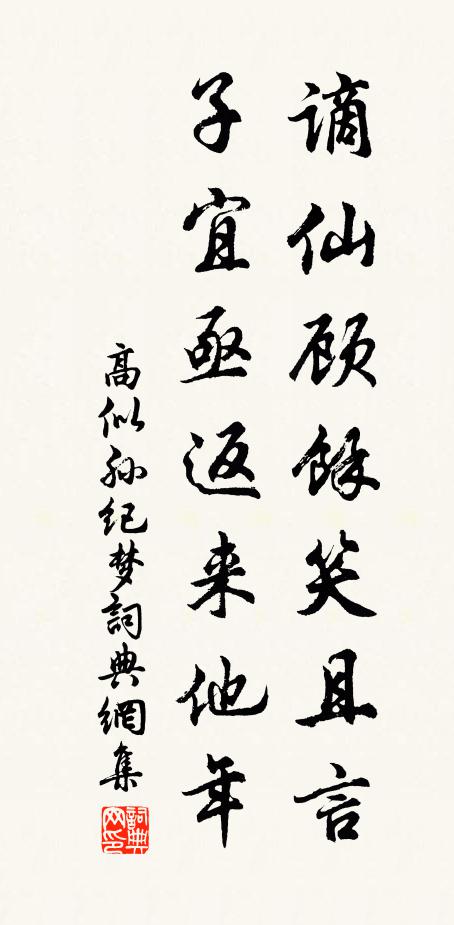 谪仙顾餘笑且言
子宜亟返来他年
高似孙纪梦詞典網集
詞典网印